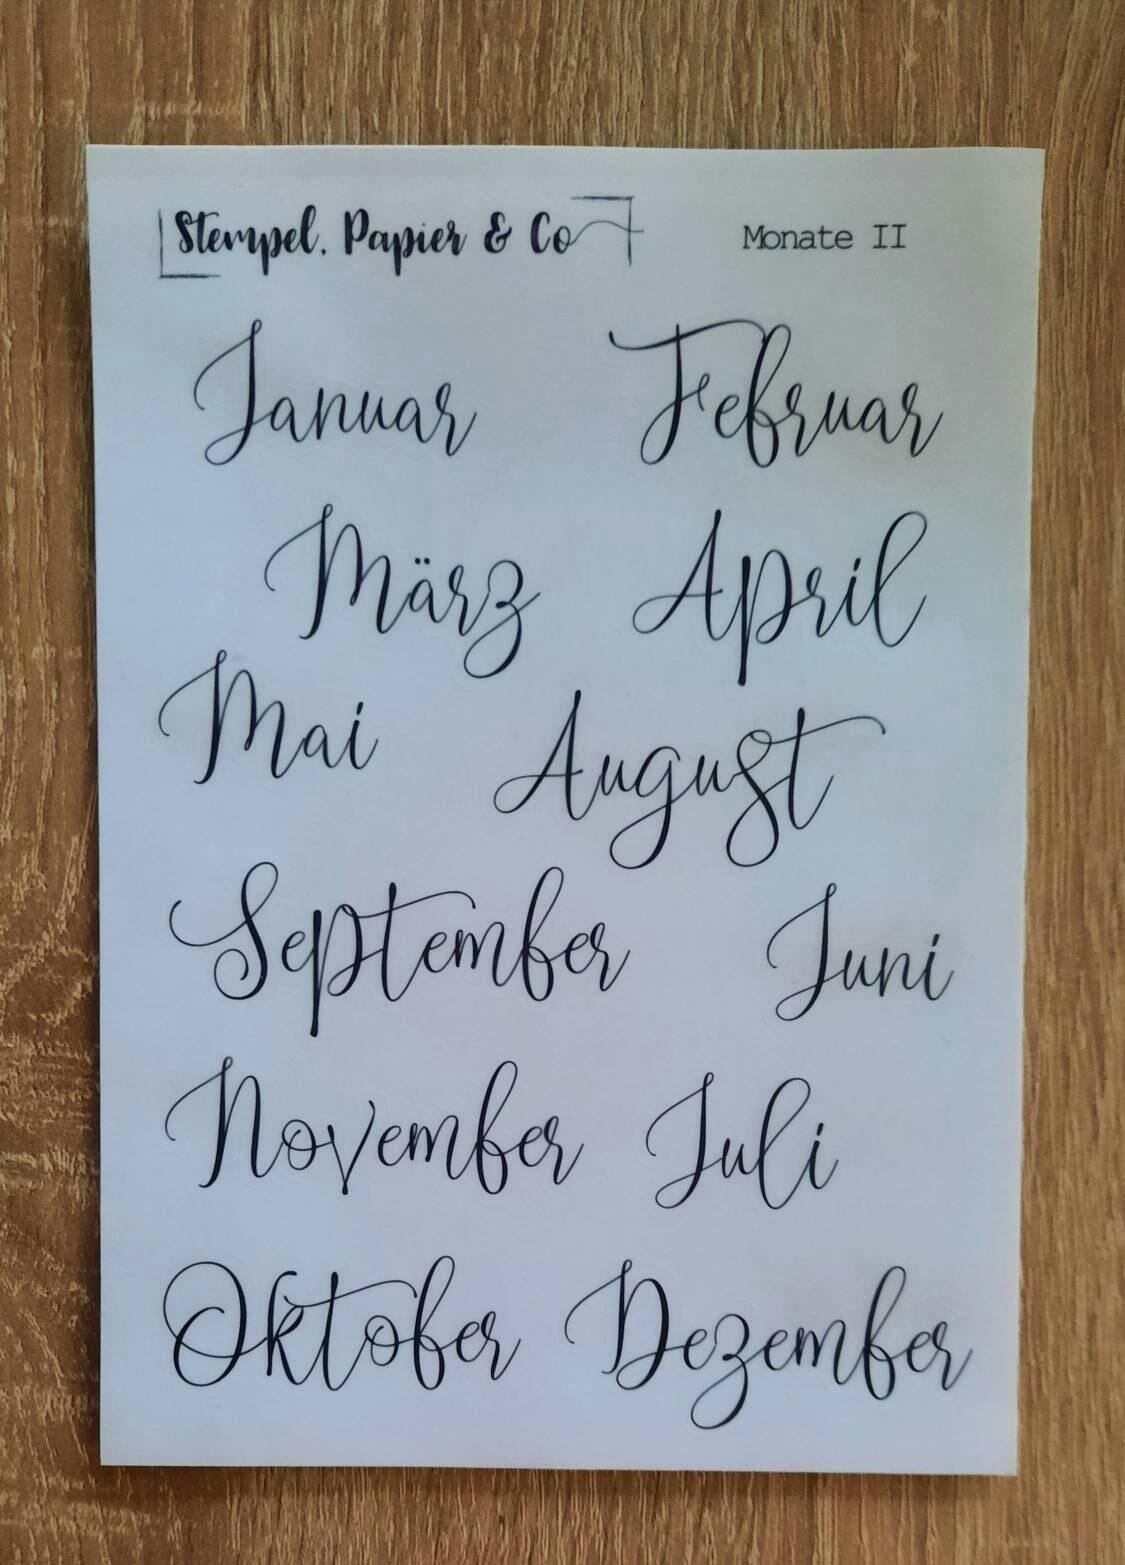 Stempel, Papier & Co
Monate II
Januar Februar
März April
Mai August
September Juni
November Juli
Oktober Dezember